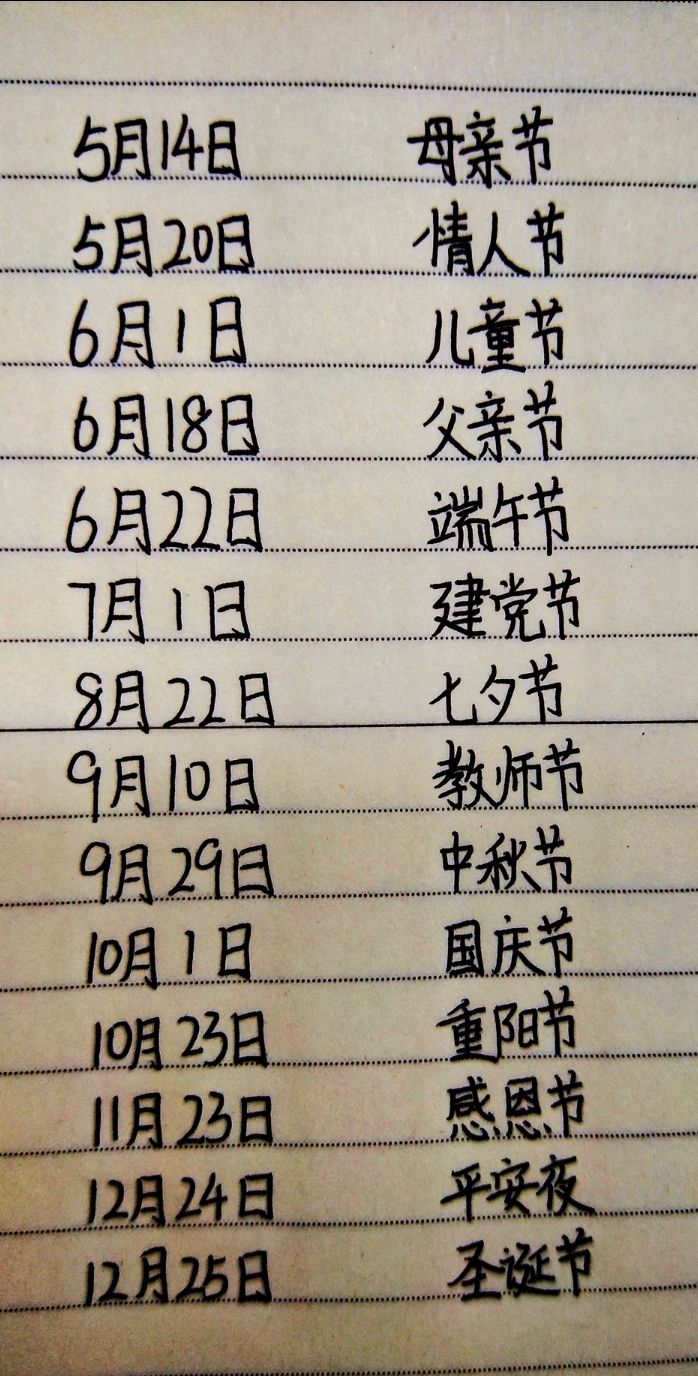 5月14日 母亲节
5月20日 情人节
6月1日 儿童节
6月18日 父亲节
6月22日 端午节
7月1日 建党节
8月22日 七夕节
9月10日 教师节
9月29日 中秋节
10月1日 国庆节
10月23日 重阳节
11月23日 感恩节
12月24日 平安夜
12月25日 圣诞节